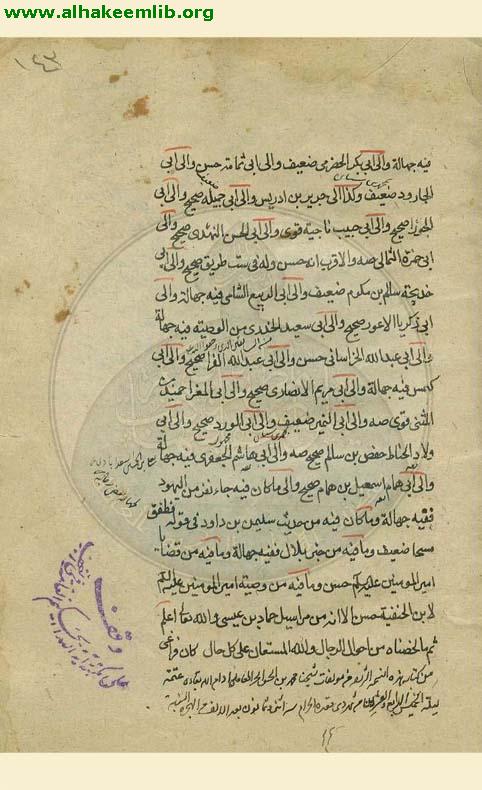 www.alhakeemlib.org
١٤٣
فيه جهالة والى ابى بكر الحضرمى ضعيف والى ابى ثمامة حسن والى ابى
الجارود ضعيف وكذا الى جرير بن ادريس والى ابى جميلة صحيح والى ابى
صحيح والى ابى حبيب ناجية قوى والى ابى الحسن النهدى صحيح والى
ابى حمزة الثمالى صه والاقرب انه حسن وله فى ست طريق صحيح والى ابى
خديجة سالم بن مكرم ضعيف والى ابى الربيع الشامى فيه جهالة والى
ابى زكريا الاعور صحيح والى ابى سعيد الخدرى من الوصية فيه جهالة
والى ابى عبد الله الخراسانى حسن والى ابى عبد الله الفرا صحيح والى ابى
فيه جهالة والى ابى مريم الانصارى صحيح والى ابى المغرا حميد بن
المثنى قوى صه والى ابى النمير ضعيف والى ابى الورد صحيح والى ابى
ولاد الحناط حفص بن سالم صحيح صه والى ابى هاشم الجعفرى فيه جهالة
والى ابى همام اسمعيل بن همام صحيح والى ماكان فيه جاء نفر من اليهود
ففيه جهالة وماكان فيه من حديث سليمن بن داود فى قوله فطفق
مسحا ضعيف وما فيه من خبر بلال ففيه جهالة وما فيه من قضايا
امير المومنين عليه حسن وما فيه من وصية امير المومنين عليه
لابن الحنفية حسن الا انه من مراسيل حماد بن عيسى والله تعا اعلم
ثم ما لخصناه من احوال الرجال والله المستعان على كل حال
من كتابة هذه النسخة من مولفات شيخنا محمد بن الحسن الحر العاملى ادام الله
ليلة الخميس الرابع والعشرين من شهر ذى قعدة الحرام سنة بعد الالف من الهجرة
وقف